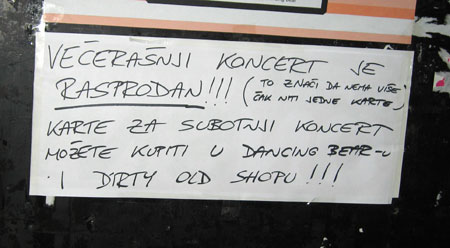 VEČERAŠNJI KONCERT JE
RASPRODAN!!! (TO ZNAČI DA NEMA VIŠE
ČAK NITI JEDNE KARTE)
KARTE ZA SUBOTNJI KONCERT
MOŽETE KUPITI U DANCING BEAR-U
I DIRTY OLD SHOPU!!!